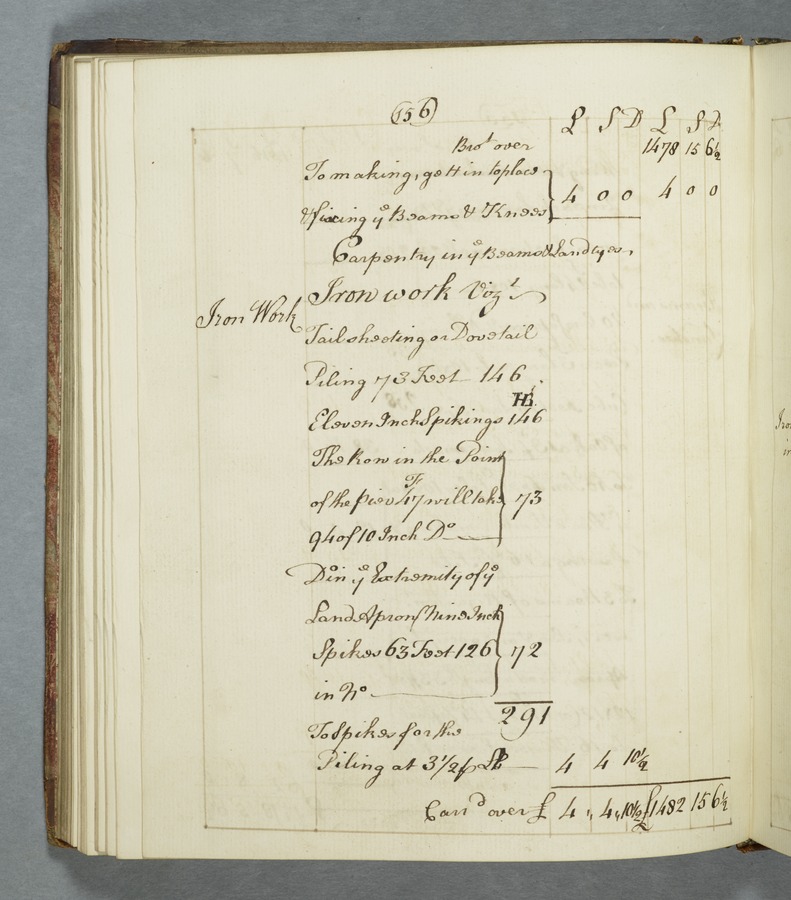 (156)
£ S D £ S D
Bro.t over 1478 15 6½
To making, gettin toplace
& fixing ye Beams & Knees 4 0 0 4 0 0
Carpentry in ye Beams & Landtyes,
Iron work Vizt
Iron Work
Tailsheeting or Dovetail
Piling 73 Feet 146.
lb.
Eleven Inch Spikings 146
The Row in the Point
of the pier 47 F. will take 73
94 of 10 Inch Do
Do in ye Extremity of ye
Land Apron Nine Inch
Spikes 63 Feet 126 72
in No
291
To Spikes for the
Piling at 3½ p lb 4 4 10½
Carr.d over £ 4 „ 4 „ 10½ £1482 15 6½